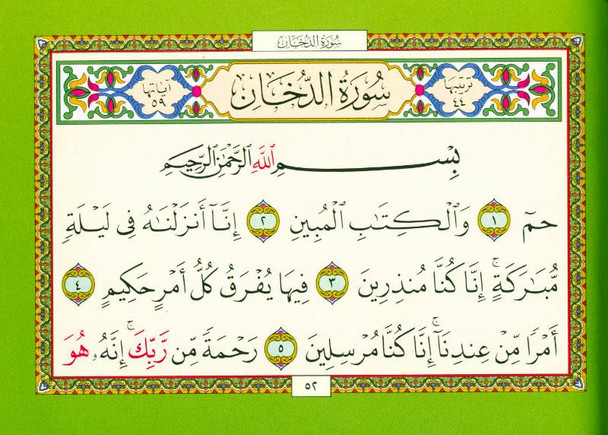 سُورَةُ الدُّخَانِ
تَرْتِيبُهَا ٤٤
سُورَةُ الدُّخَانِ
آيَاتُهَا ٥٩
بِسْمِ ٱللَّهِ ٱلرَّحْمَٰنِ ٱلرَّحِيمِ
حمٓ ١ وَٱلْكِتَٰبِ ٱلْمُبِينِ ٢ إِنَّآ أَنزَلْنَٰهُ فِى لَيْلَةٍ
مُّبَٰرَكَةٍ ۚ إِنَّا كُنَّا مُنذِرِينَ ٣ فِيهَا يُفْرَقُ كُلُّ أَمْرٍ حَكِيمٍ ٤
أَمْرًا مِّنْ عِندِنَآ ۚ إِنَّا كُنَّا مُرْسِلِينَ ٥ رَحْمَةً مِّن رَّبِّكَ ۚ إِنَّهُۥ هُوَ
٥٢